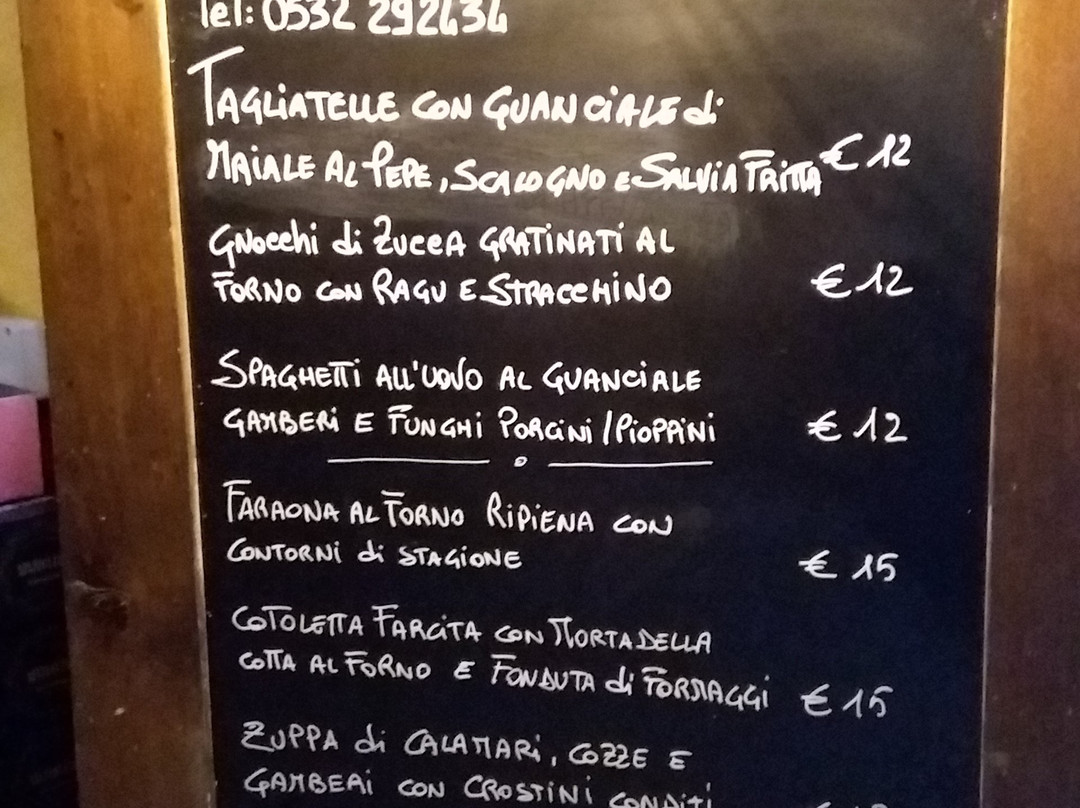 Tel: 0532 292434
TAGLIATELLE CON GUANCIALE di
MAIALE AL PEPE, SCALOGNO E SALVIA FRITTA € 12
GNOCCHI di ZUCCA GRATINATI AL
FORNO CON RAGU E STRACCHINO € 12
SPAGHETTI ALL'UOVO AL GUANCIALE
GAMBERI E FUNGHI PORCINI / PIOPPINI € 12
FARAONA AL FORNO RIPIENA CON
CONTORNI di STAGIONE € 15
COTOLETTA FARCITA CON MORTADELLA
COTTA AL FORNO E FONDUTA di FORMAGGI € 15
ZUPPA di CALAMARI, COZZE E
GAMBERI CON CROSTINI CONDITI